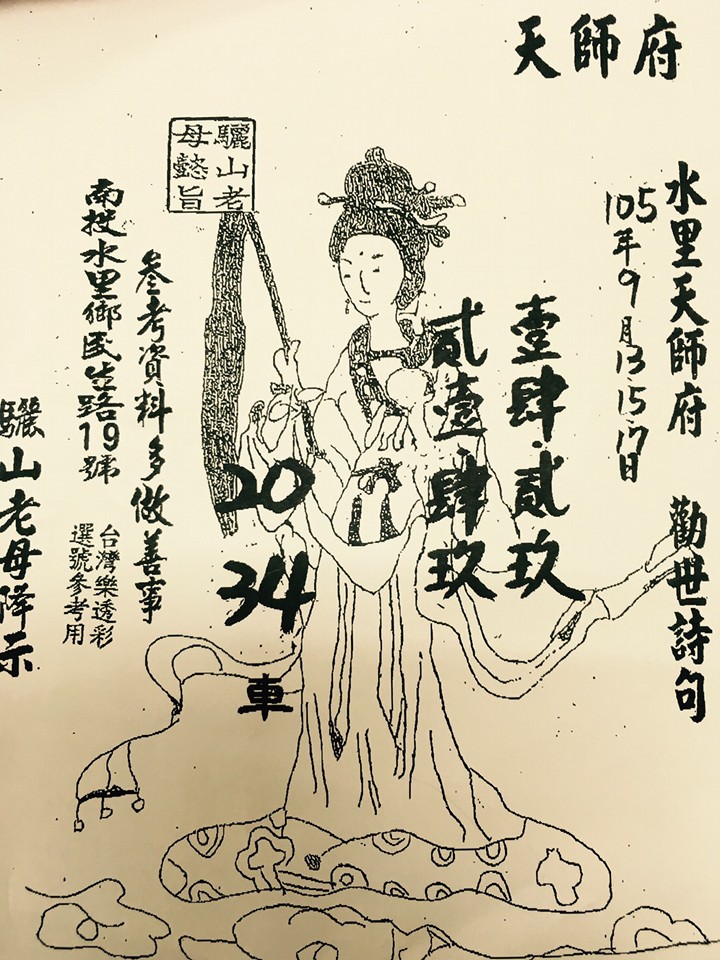 天師府
水里天師府 勸世詩句
105年9月13.15.17日
壹肆.貳玖
貳壹.肆玖
20
34
車
驪山老
母懿旨
參考資料多做善事
台灣樂透彩
選號參考用
南投水里鄉民生路19號
驪山老母降示